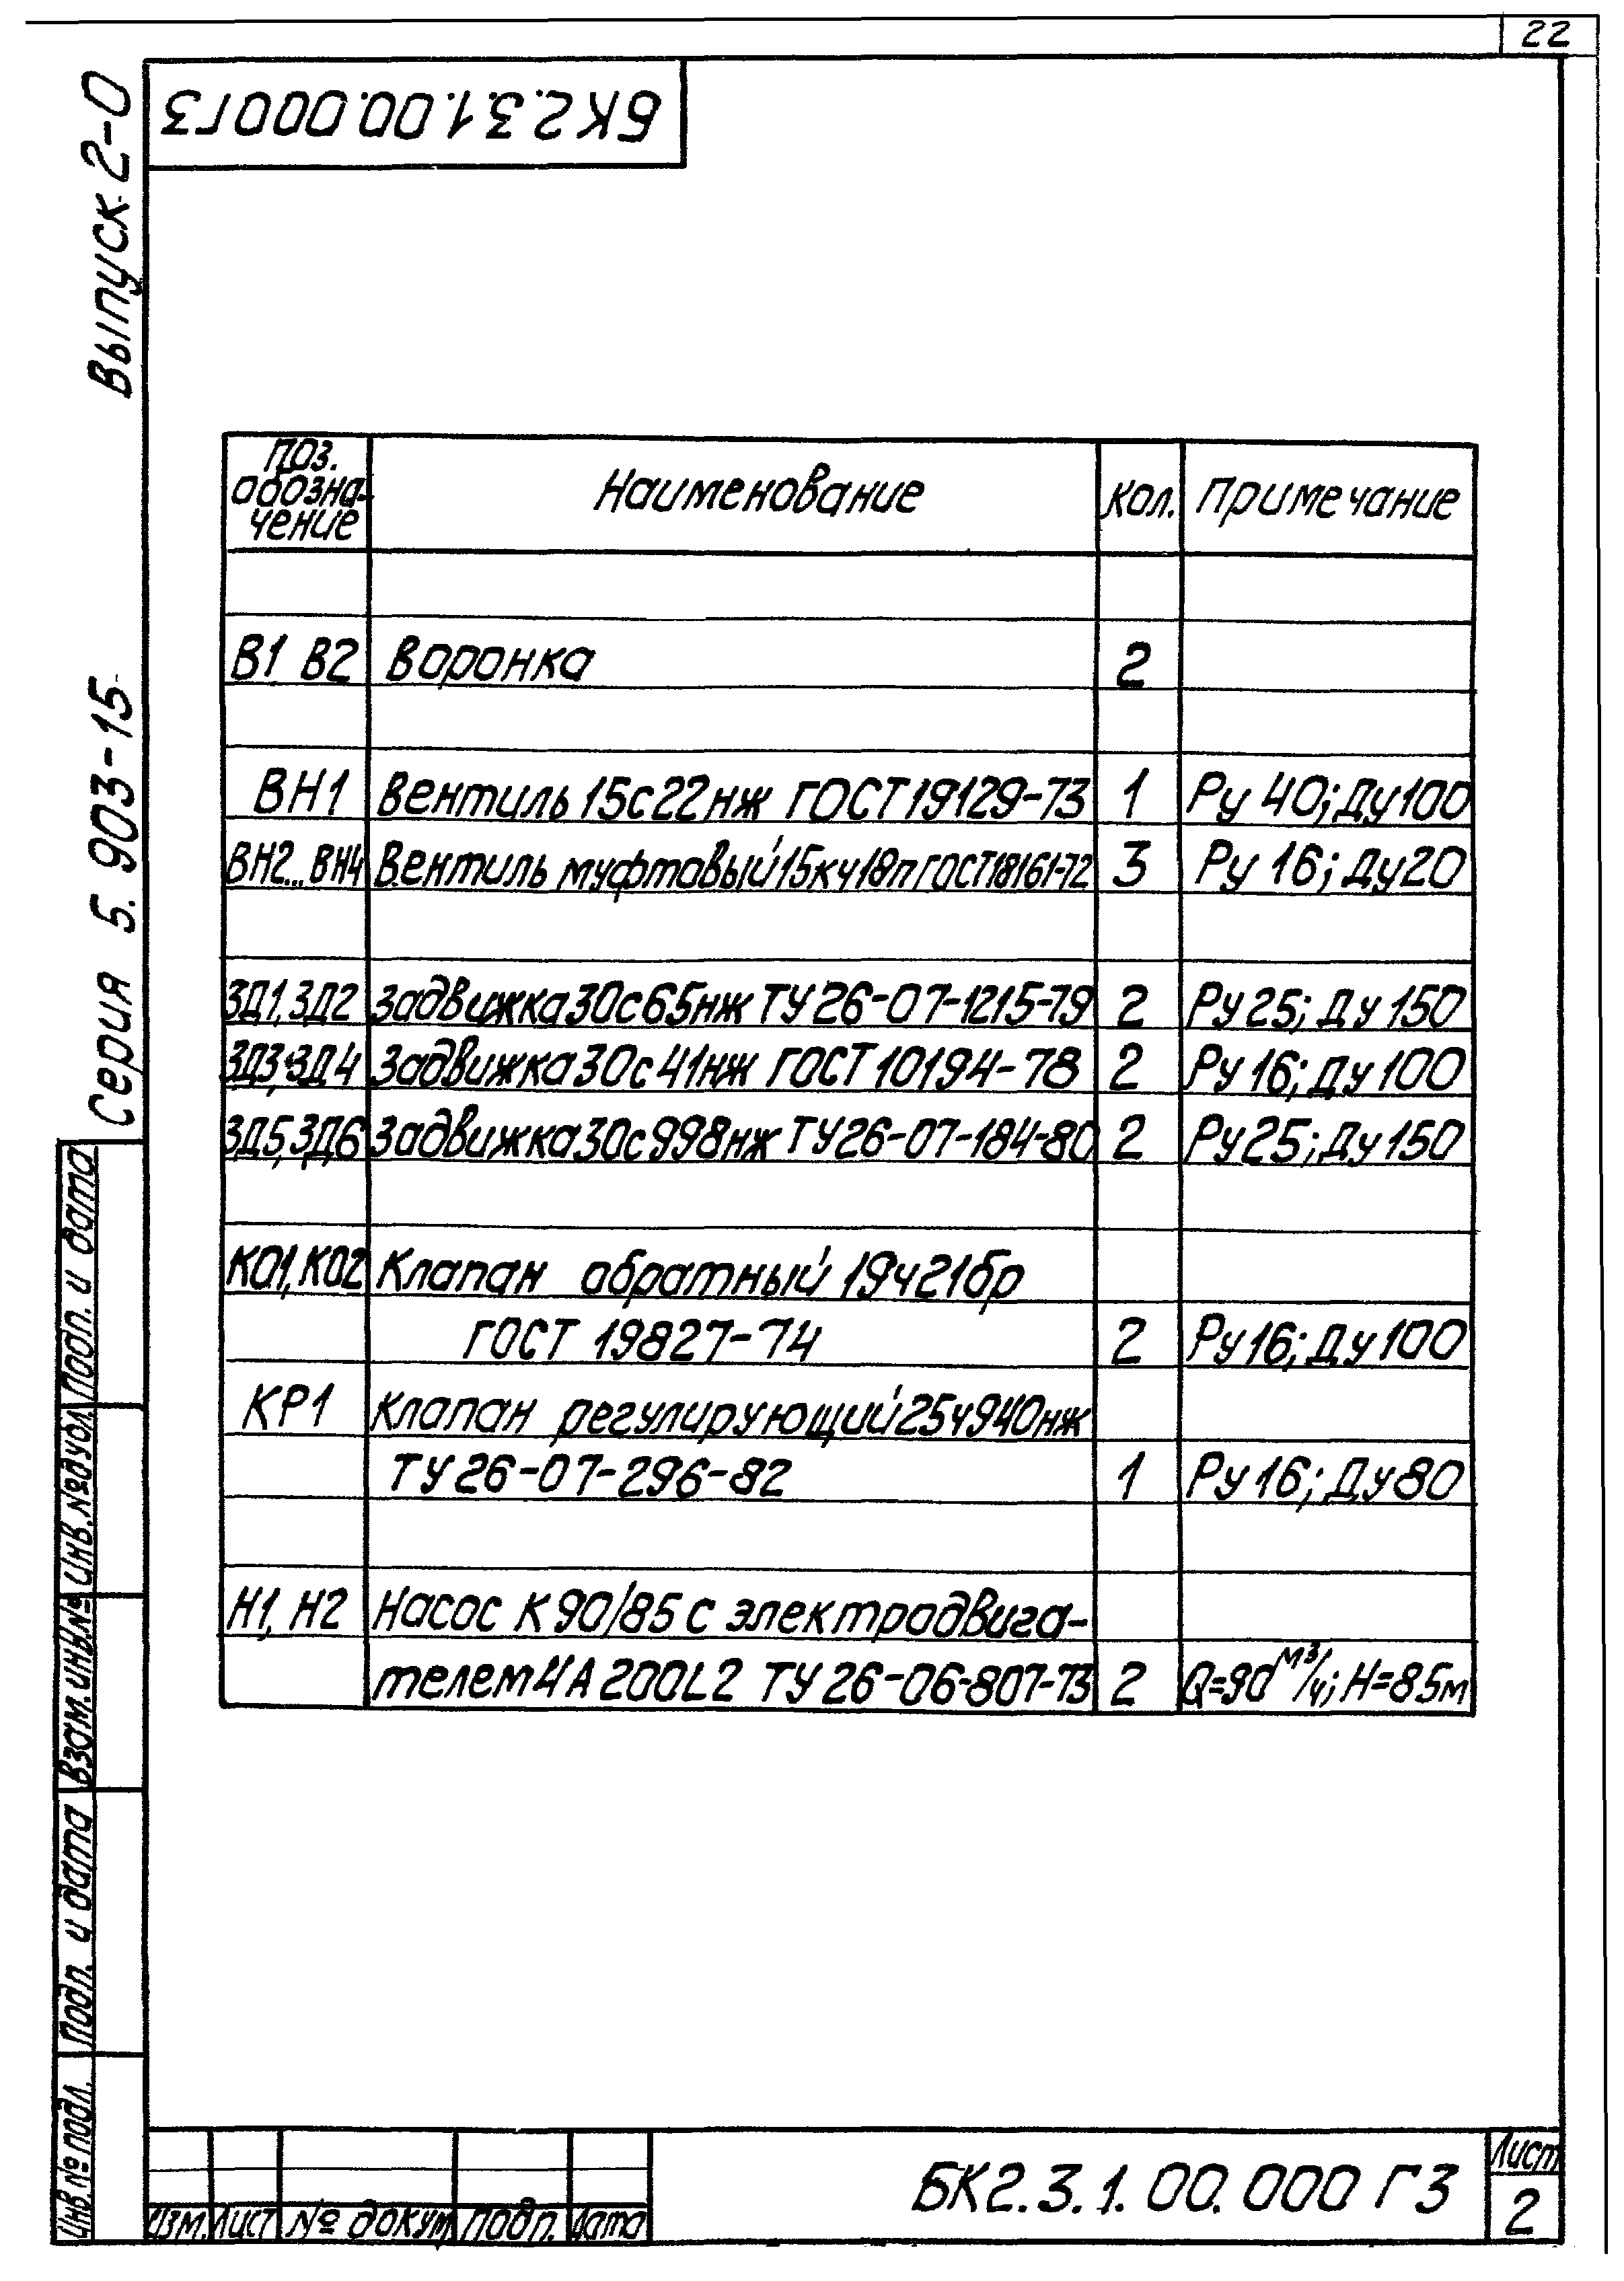 22
БК2.3.1.00.000Г3
Выпуск 2-0
Серия 5.903-15
Поз. обозна-
чение
Наименование
Кол.
Примечание
В1 В2 Воронка 2
ВН1 Вентиль 15с22нж ГОСТ 19129-73 1 Ру 40; Ду100
ВН2...ВН4 Вентиль муфтовый 15кч18п ГОСТ18161-72 3 Ру 16; Ду20
ЗД1, ЗД2 Задвижка 30с65нж ТУ 26-07-1215-79 2 Ру 25; Ду 150
ЗД3, ЗД4 Задвижка 30с41нж ГОСТ 10194-78 2 Ру 16; Ду 100
ЗД5, ЗД6 Задвижка 30с998нж ТУ26-07-184-80 2 Ру25; Ду150
КО1, КО2 Клапан обратный 19ч21бр
ГОСТ 19827-74 2 Ру16; Ду100
КР1 Клапан регулирующий 25ч940нж
ТУ 26-07-296-82 1 Ру16; Ду80
Н1, Н2 Насос К 90/85 с электродвига-
телем 4А 200L2 ТУ 26-06-807-73 2 Q=90 м³/ч; Н=85м
Подп. и дата
Инв.№ дубл.
Взам.инв.№
Подп. и дата
Инв.№ подл.
Изм. Лист № докум. Подп. Дата
БК2.3.1.00.000 Г3
Лист
2